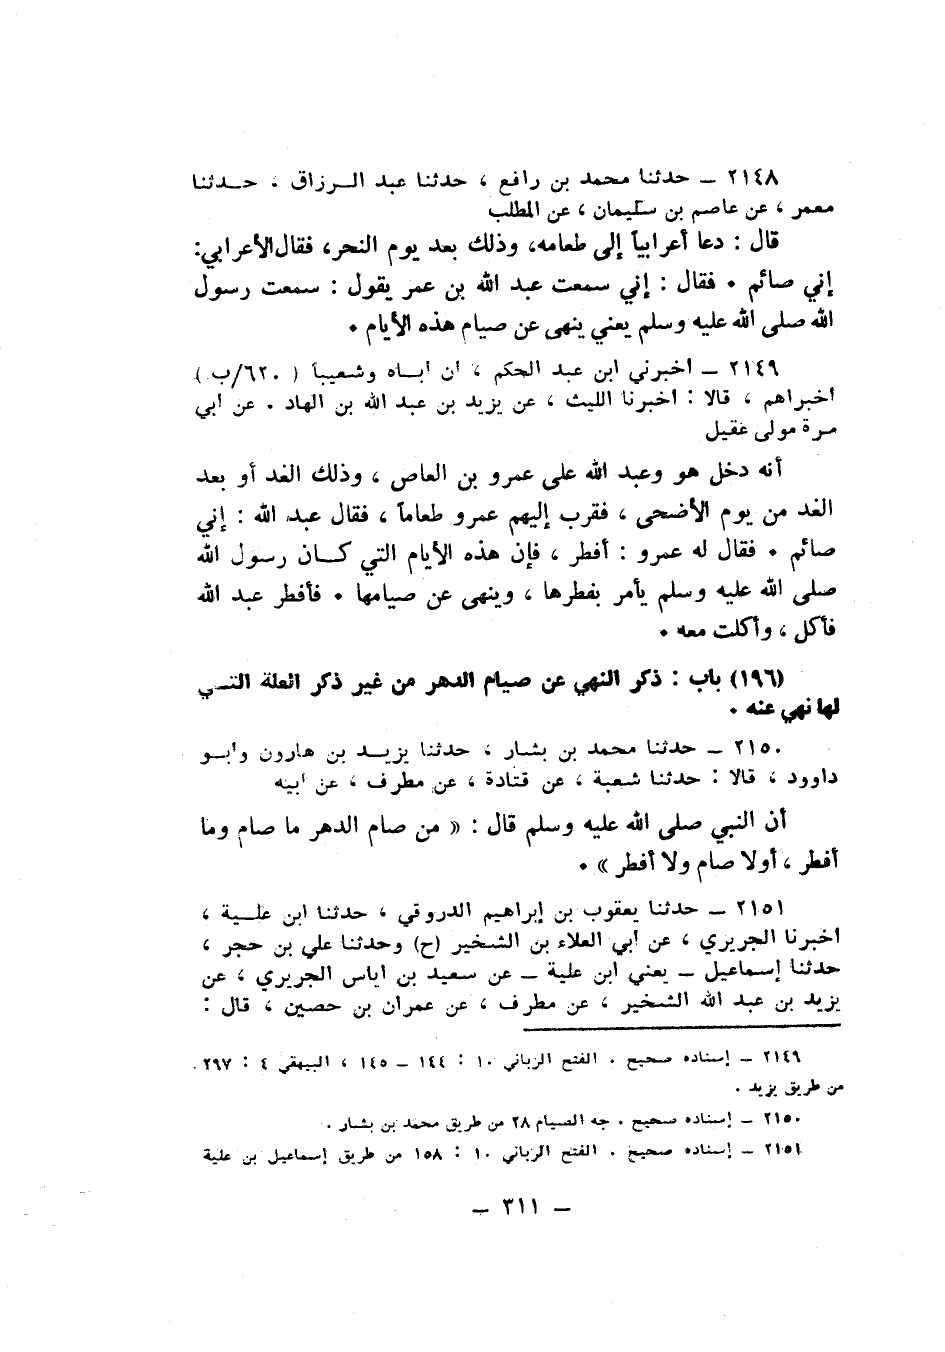 ٢١٤٨ ــ حدثنا محمد بن رافع ، حدثنا عبد الــرزاق . حــدثنا
معمر ، عن عاصم بن سليمان ، عن المطلب
قال : دعا أعرابياً إلى طعامه، وذلك بعد يوم النحر، فقال الأعرابي:
إني صائم . فقال : إني سمعت عبد الله بن عمر يقول : سمعت رسول
الله صلى الله عليه وسلم يعني ينهى عن صيام هذه الأيام .
٢١٤٩ ــ اخبرني ابن عبد الحكم ، ان ابــاه وشعيباً ( ٦٢٠/ب )
اخبراهم ، قالا : اخبرنا الليث ، عن يزيد بن عبد الله بن الهاد . عن ابي
مرة مولى عقيل
أنه دخل هو وعبد الله على عمرو بن العاص ، وذلك الغد أو بعد
الغد من يوم الأضحى ، فقرب إليهم عمرو طعاماً ، فقال عبد الله : إني
صائم . فقال له عمرو : أفطر ، فإن هذه الأيام التي كــان رسول الله
صلى الله عليه وسلم يأمر بفطرها ، وينهى عن صيامها . فأفطر عبد الله
فأكل ، وأكلت معه .
(١٩٦) باب : ذكر النهي عن صيام الدهر من غير ذكر العلة التــي
لها نهي عنه .
٢١٥٠ ــ حدثنا محمد بن بشار ، حدثنا يزيــد بن هارون وابــو
داوود ، قالا : حدثنا شعبة ، عن قتادة ، عن مطرف ، عن ابيه
أن النبي صلى الله عليه وسلم قال : « من صام الدهر ما صام وما
أفطر ، أولا صام ولا أفطر » .
٢١٥١ ــ حدثنا يعقوب بن إبراهيم الدروقي ، حدثنا ابن علــية ،
اخبرنا الجريري ، عن ابي العلاء بن الشخير (ح) وحدثنا علي بن حجر ،
حدثنا إسماعيل ــ يعني ابن علية ــ عن سعيد بن اباس الجريري ، عن
يزيد بن عبد الله الشخير ، عن مطرف ، عن عمران بن حصين ، قال :
٢١٤٩ ــ إسناده صحيح . الفتح الرباني ١٠ : ١٤٤ ــ ١٤٥ ، البيهقي ٤ : ٢٩٧ .
من طريق يزيد .
٢١٥٠ ــ إسناده صحيح . جه الصيام ٢٨ من طريق محمد بن بشار .
٢١٥١ ــ إسناده صحيح . الفتح الرباني ١٠ : ١٥٨ من طريق إسماعيل بن علية
ــ ٣١١ ــ